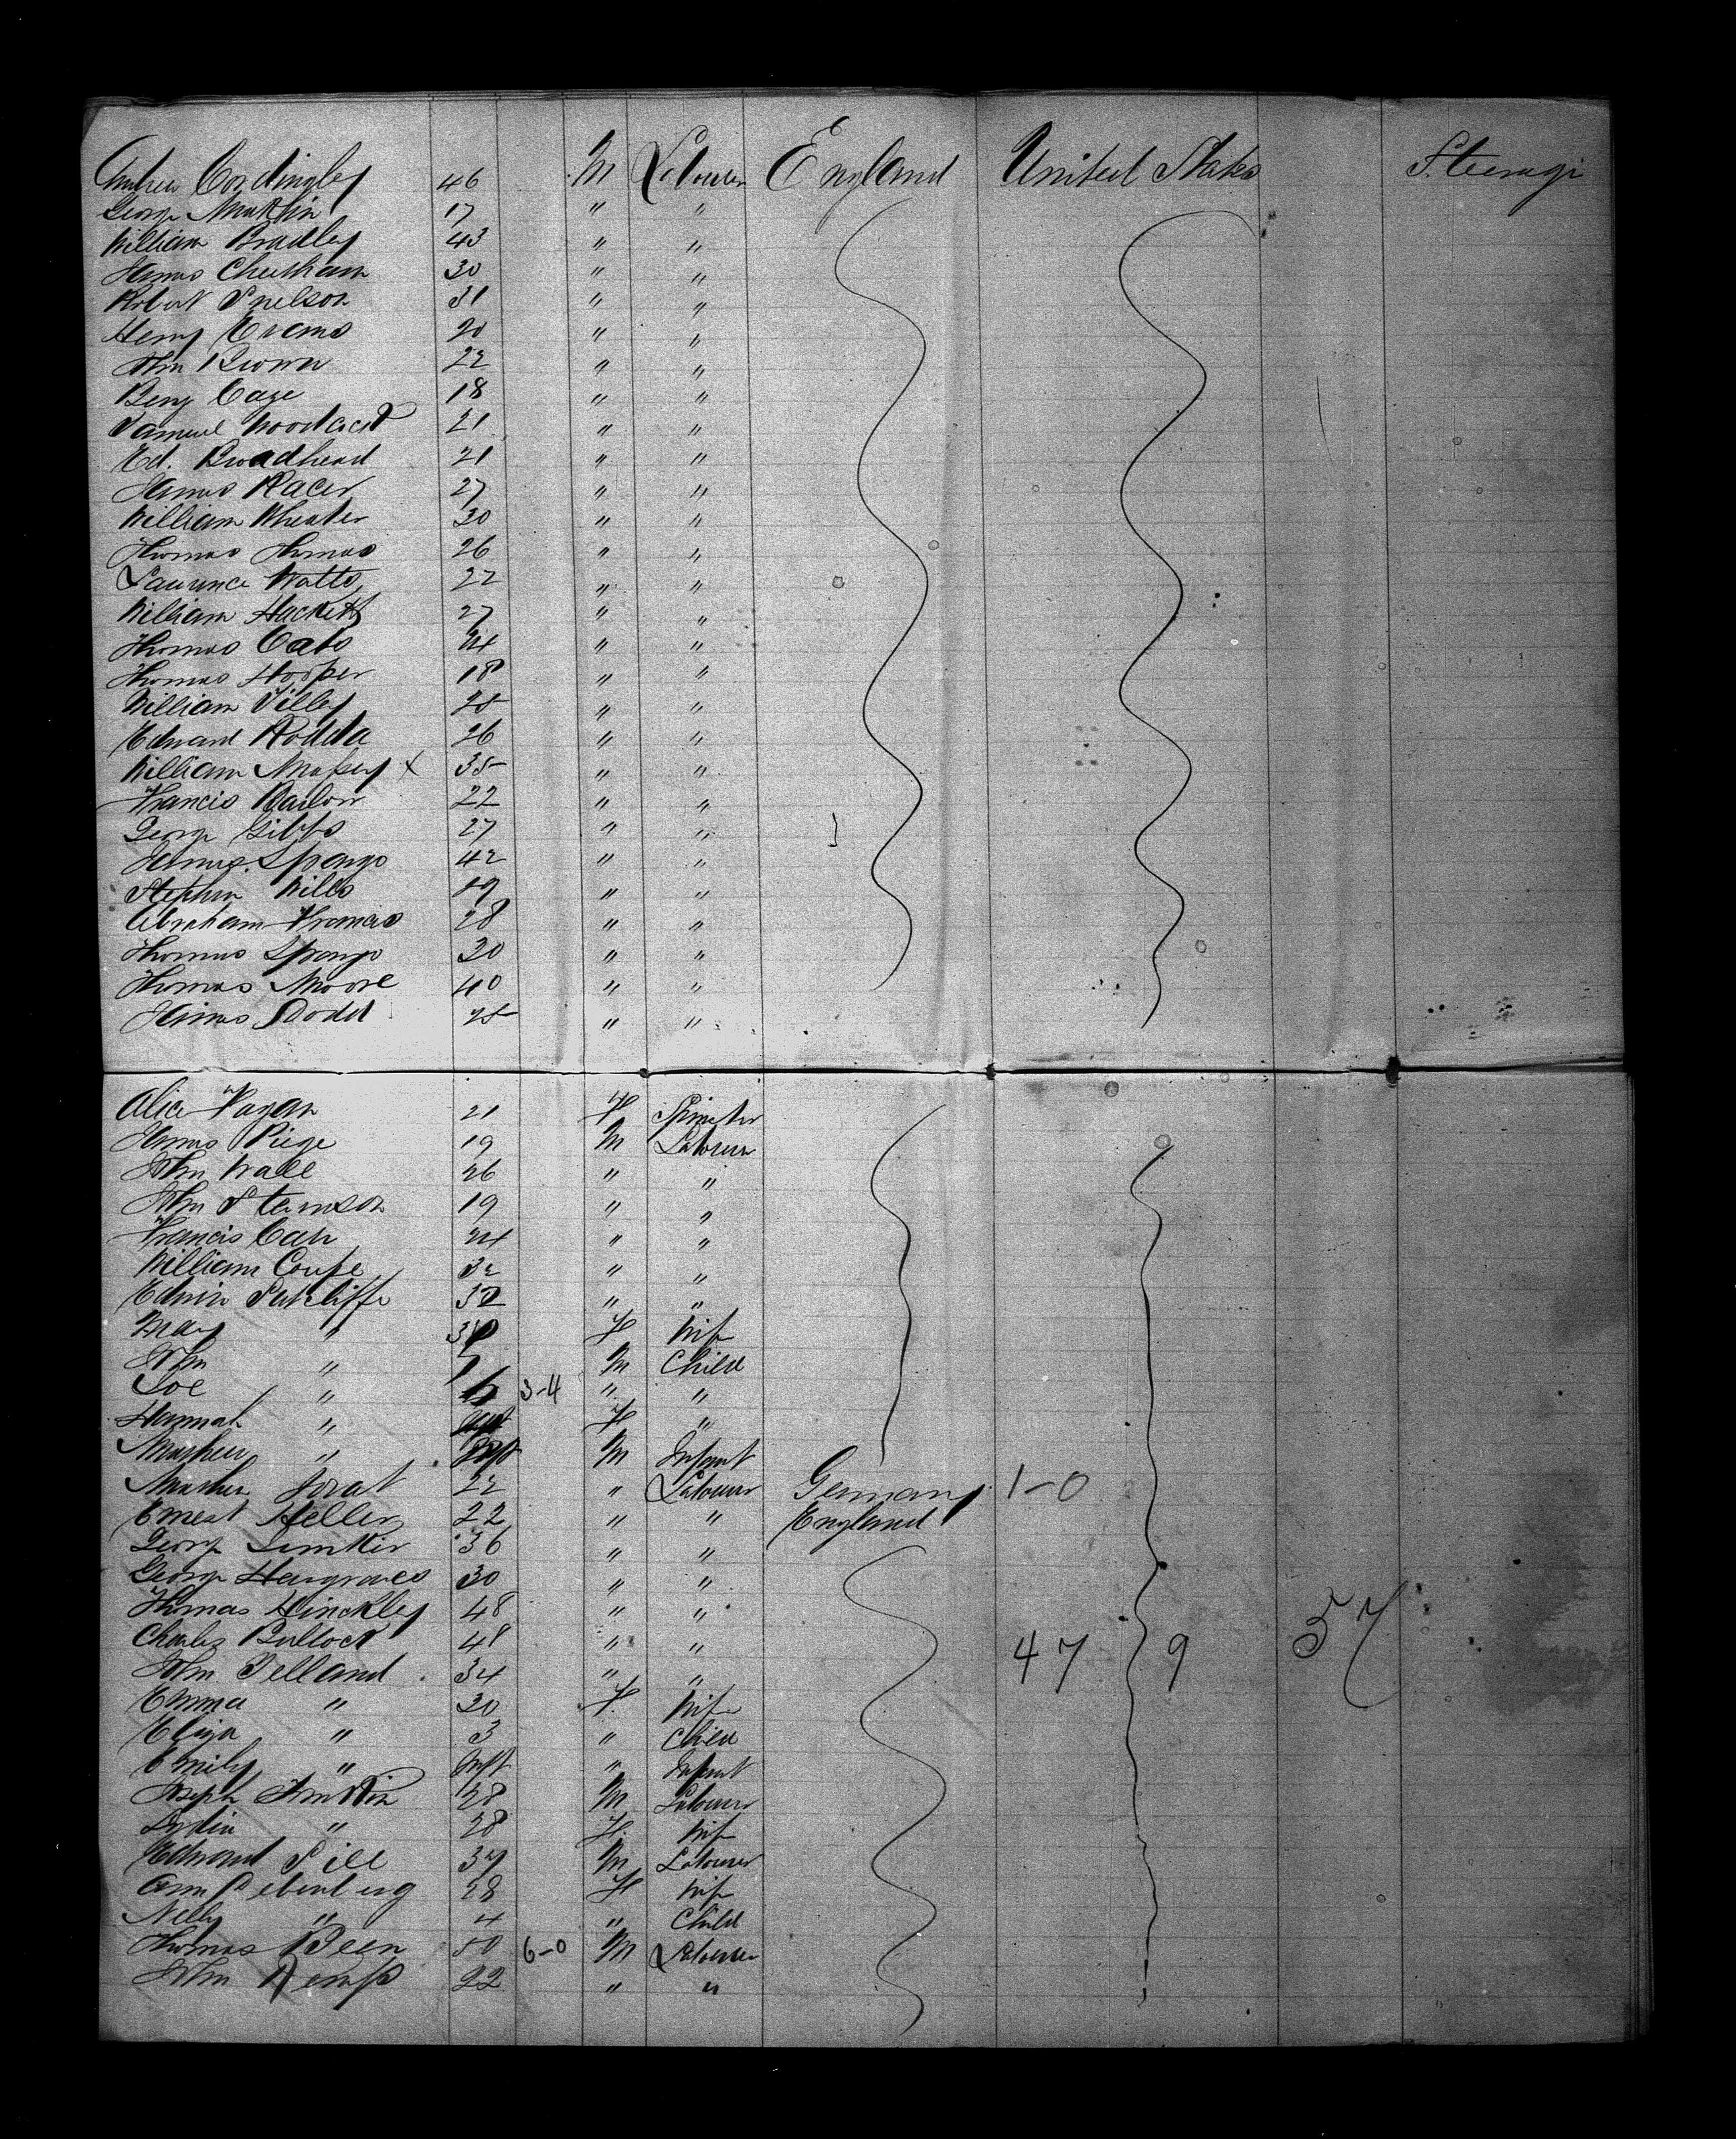 Andrew Cordingley 46 M Labourer England United States Steerage
George Martin 17 " "
William Bradley 43 " "
James Cheetham 30 " "
Robert Snelson 31 " "
Henry Evans 20 " "
John Brown 22 " "
Benj Cage 18 " "
Samuel 21 " "
Ed. Broadhead 21 " "
James Racer 27 " "
William Wheater 30 " "
Thomas Thomas 26 " "
Laurence Watts 22 " "
William Hackett 27 " "
Thomas Cato 24 " "
Thomas Hooper 18 " "
William Tilley 25 " "
Edward Rodda 26 " "
William Massey X 35 " "
Francis Barlow 22 " "
George Gibbs 27 " "
James Spargo 42 " "
Stephen Wills 19 " "
Abraham Francis 28 " "
Thomas Spargo 20 " "
Thomas Moore 40 " "
James Dodd 25 " "
Alice Fagan 21 F Spinster
James Piege 19 M Labourer
John Wall 26 " "
John 19 " "
Francis Carr 24 " "
William Coupe 32 " "
Edwin Sutcliffe 32 " "
Mary " F Wife
John " M Child
Joe " 3-4 " "
Hannah " F "
" Inft M Infant
22 " Labourer Germany 1-0
Ernest Heller 22 " " England
George 36 " "
George Hargraves 30 " "
Thomas Hinckley 48 " "
Charles Bullock 48 " " 47 9 57
John Pelland 34 " "
Emma " 30 F. Wife
Eliza " 3 " Child
Emily " Inft " Infant
Joseph 28 M Labourer
Lydia " 28 F. Wife
Edward Pill 37 M Labourer
Ann 28 F Wife
Nelly " 4 " Child
Thomas Been 50 6-0 M Labourer
John Kemp 22 " "